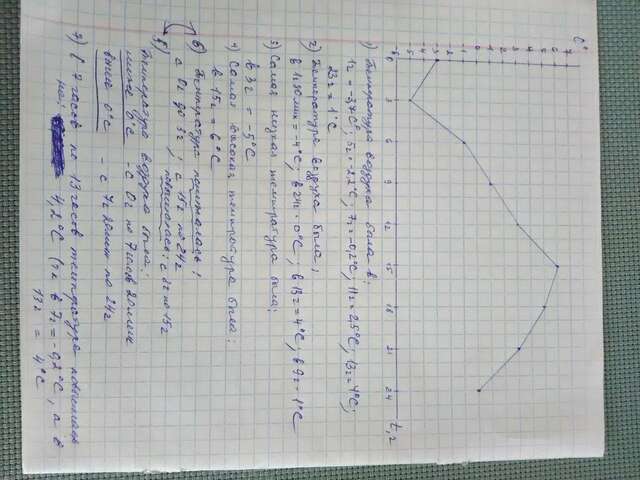 C°
7
6
5
4
3
2
1
0
-1
-2
-3
-4
-5
0
3
6
9
12
15
18
21
24
t, г
1) Температура воздуха была в:
1г = -3,7°C; 5г = -2,2°C; 7г = -0,2°C; 11г = 2,5°C; 13г = 4°C;
23г = 1°C
2) Температура воздуха была:
в 1г30мин = -4°C; в 24г = 0°C; в 13г = 4°C; в 9г = 1°C
3) Самая низкая температура была:
в 3г = -5°C
4) Самая высокая температура была:
в 15г = 6°C
6) Температура понижалась:
с 0г до 3г, с 15г по 24г
повышалась: с 3г по 15г
5)
Температура воздуха была:
ниже 0°C - с 0г по 7часов 20мин
выше 0°C - с 7г 20мин по 24г
7) С 7 часов по 13 часов температура повысилась
на: 4,2°C (т.к в 7г = -0,2°C, а в
13г = 4°C